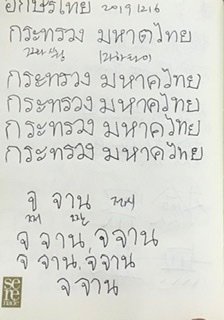 อักษรไทย 2019 12 16
กระทรวง มหาดไทย
กระทรวง มหาดไทย
กระทรวง มหาดไทย
กระทรวง มหาดไทย
กระทรวง มหาดไทย
จ จาน
จ จาน จ จาน
จ จาน จ จาน
จ จาน
se
re
nade